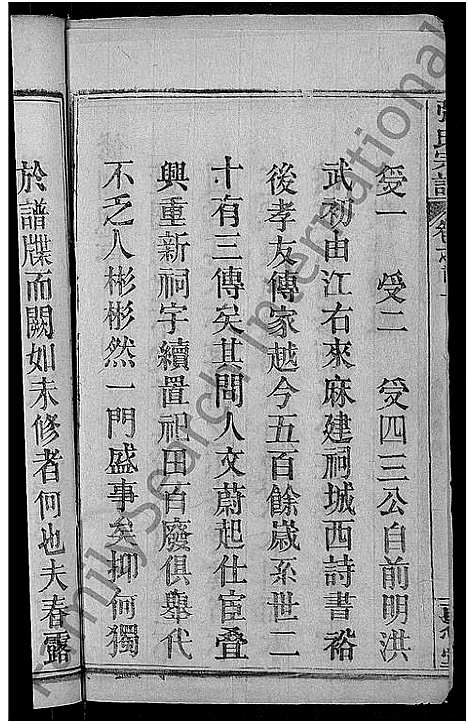 張氏宗譜
受一 受二 受四三公自前明洪
武初由江右來麻建祠城西詩書裕
後孝友傳家越今五百餘歲系世二
十有三傳矣其間人文蔚起仕宦叠
興重新祠宇續置祀田百廢俱舉代
不乏人彬彬然一門盛事矣抑何獨
於譜牒而闕如未修者何也夫春露
FamilySearch International